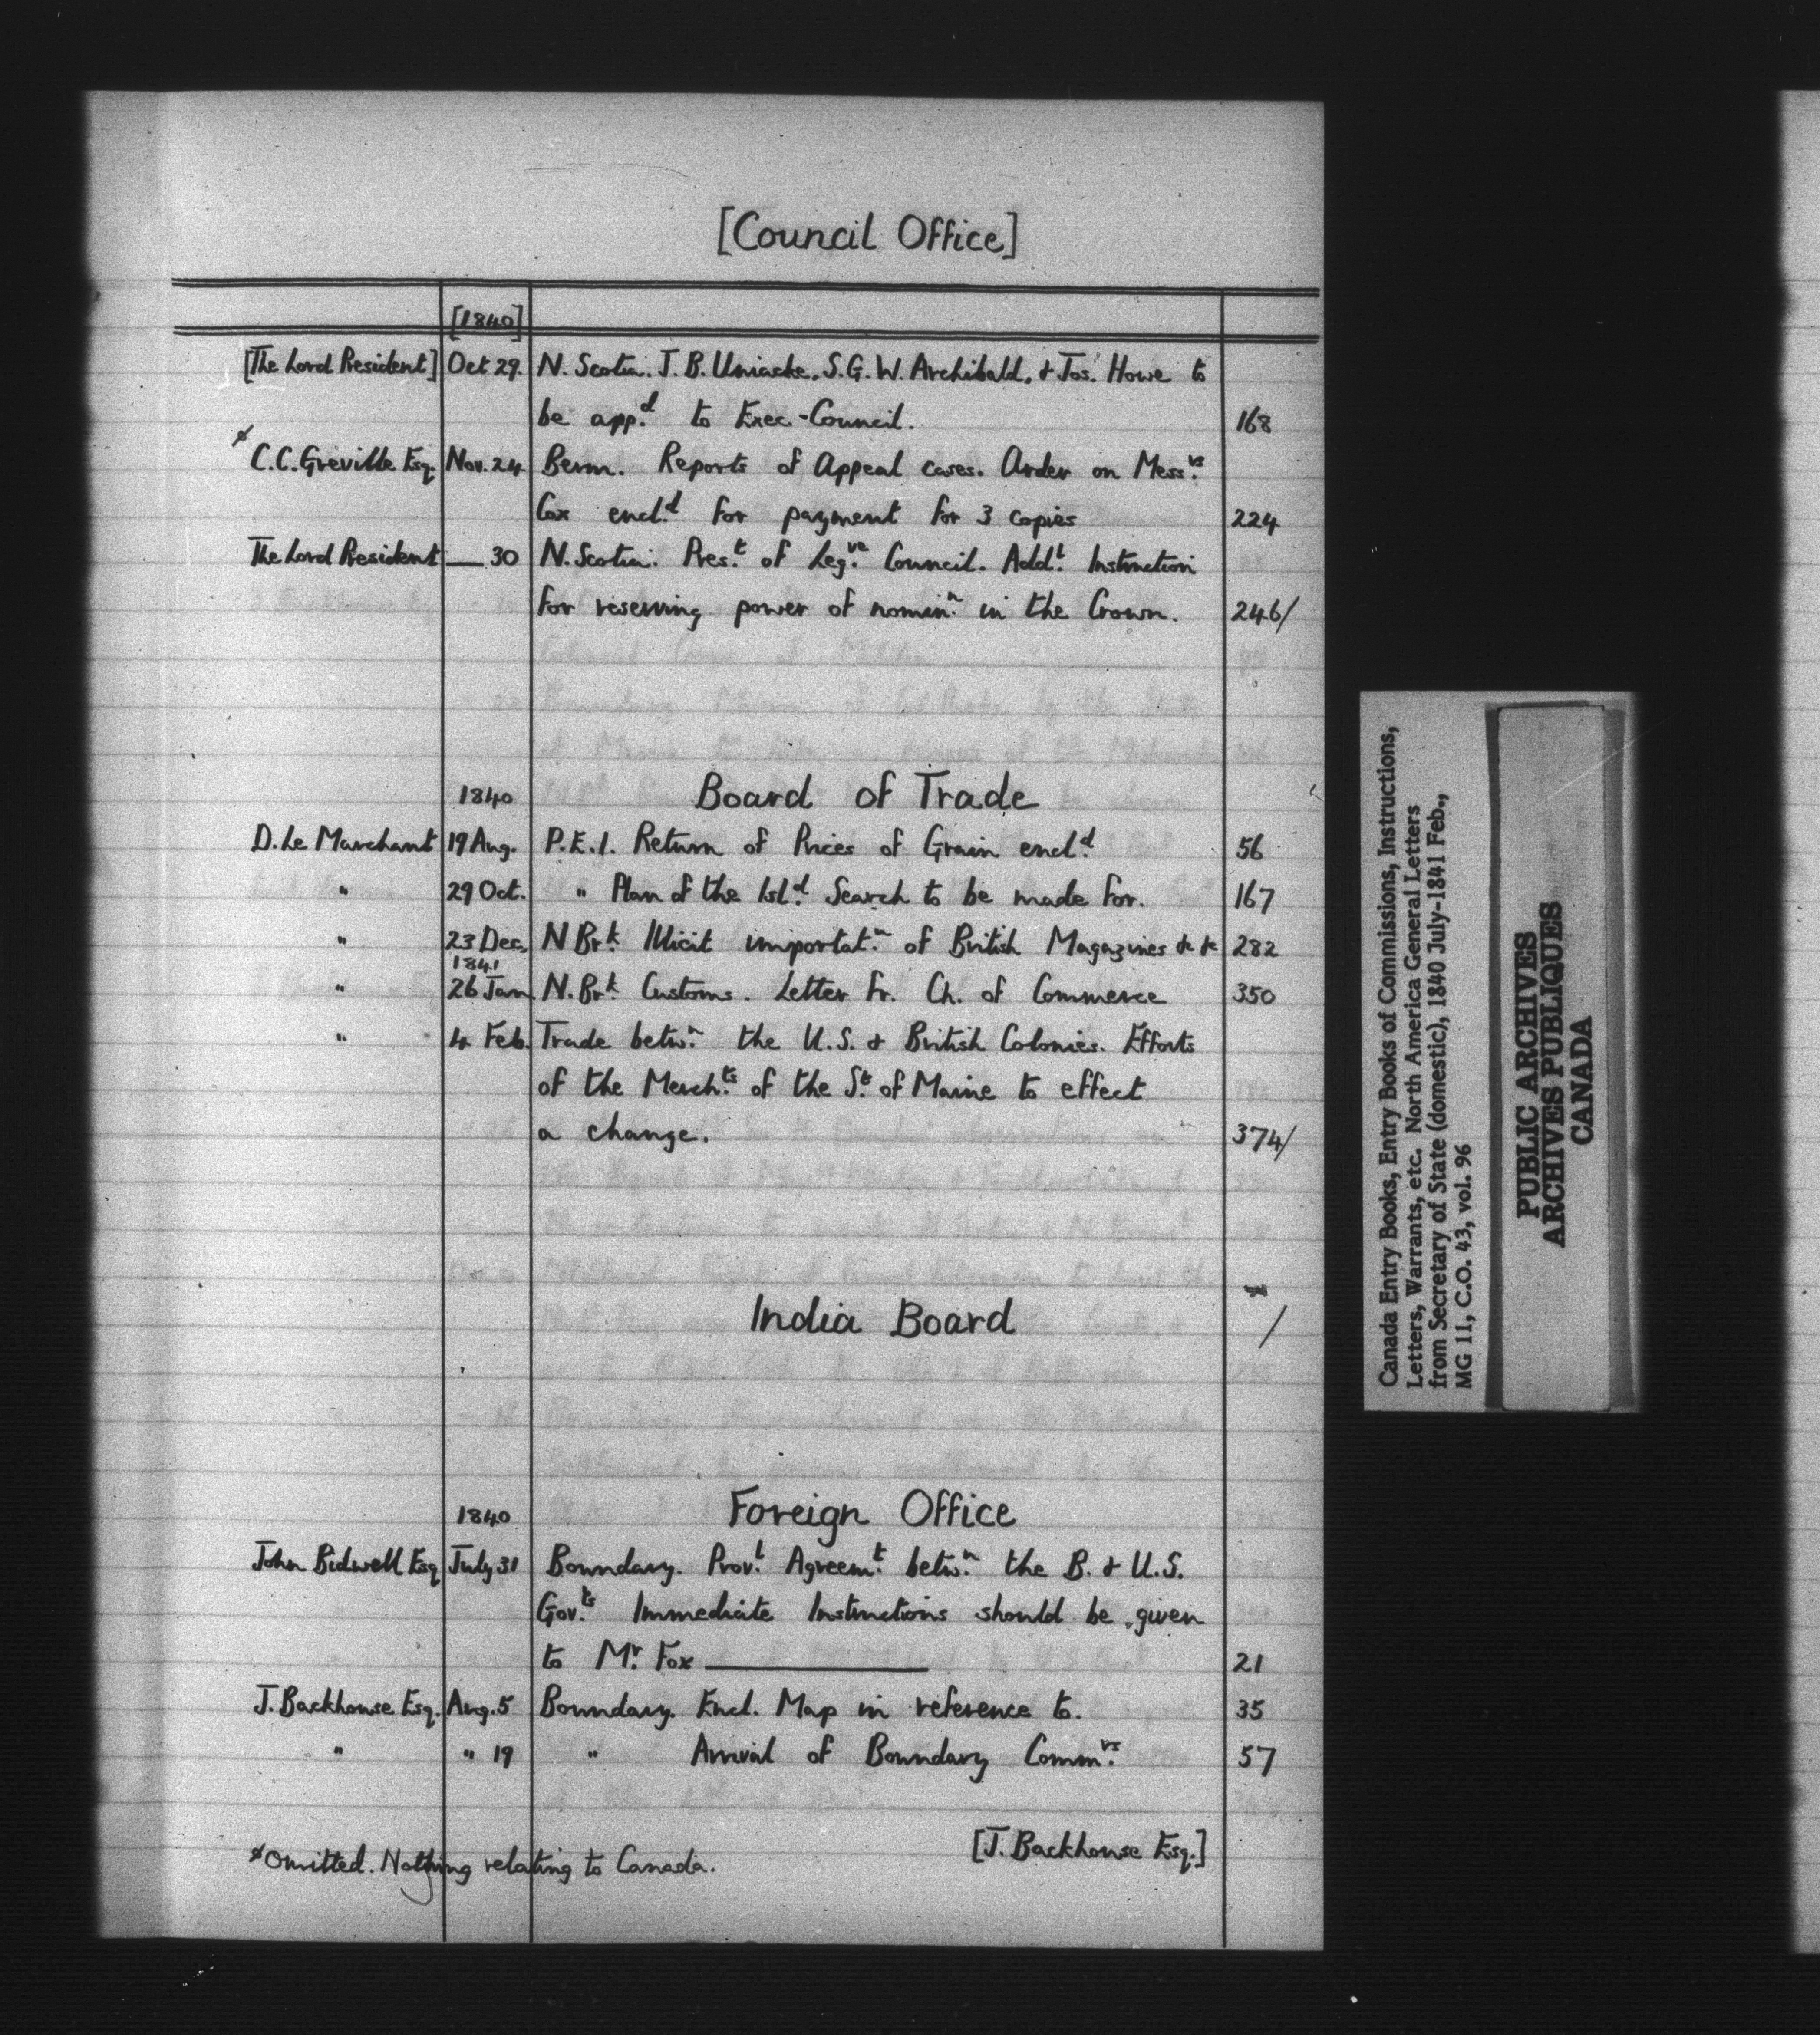 [Council Office]
[1840]
[The Lord President] Oct 29. N. Scotia. J. B. Uniacke, S. G. W. Archibald, & Jos. Howe to
be app.d to Exec-Council. 168
ø C. C. Greville Esq. Nov. 24 Berm. Reports of Appeal cases. Order on Mess.rs
Cox encl.d for payment for 3 copies 224
The Lord President — 30 N. Scotia. Pres.t of Leg.ve Council. Add.l Instruction
for reserving power of nomin.n in the Crown. 246/
1840 Board of Trade
D. Le Marchant 19 Aug. P.E.I. Return of Prices of Grain encl.d 56
" 29 Oct. " Plan of the Isl.d Search to be made for. 167
" 23 Dec. N Br.k Illicit importat.n of British Magazines &c &c 282
1841
" 26 Jan N. Br.k Customs. Letter fr. Ch. of Commerce 350
" 4 Feb. Trade betw.n the U.S. & British Colonies. Efforts
of the Merch.ts of the S.t of Maine to effect
a change. 374/
India Board /
1840 Foreign Office
John Bidwell Esq July 31 Boundary. Prov.l Agreem.t betw.n the B. & U.S.
Gov.ts Immediate Instructions should be given
to M.r Fox ——— 21
J. Backhouse Esq. Aug. 5 Boundary. Encl. Map in reference to. 35
" " 19 " Arrival of Boundary Comm.rs 57
[J. Backhouse Esq.]
ø Omitted. Nothing relating to Canada.
Canada Entry Books, Entry Books of Commissions, Instructions,
Letters, Warrants, etc. North America General Letters
from Secretary of State (domestic), 1840 July-1841 Feb.,
MG 11, C.O. 43, vol. 96
PUBLIC ARCHIVES
ARCHIVES PUBLIQUES
CANADA